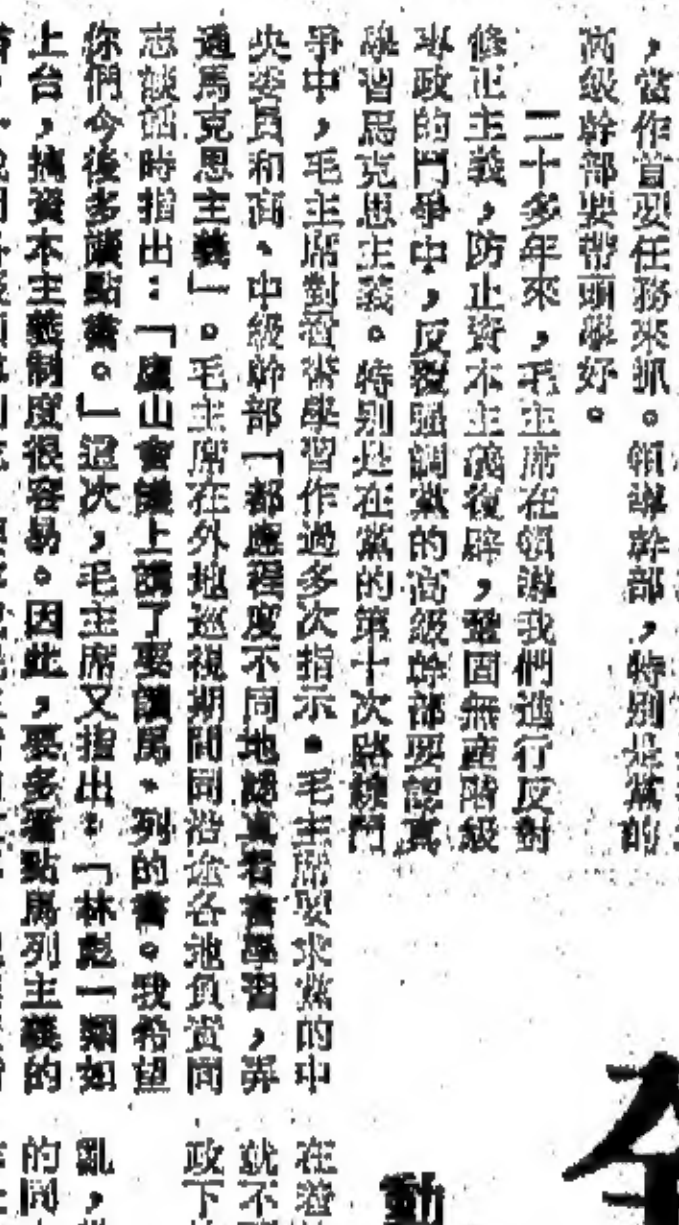 ，當作首要任務來抓。領導幹部，特別是黨的
高級幹部要帶頭學好。
二十多年來，毛主席在領導我們進行反對
修正主義，防止資本主義復辟，鞏固無產階級
專政的鬥爭中，反覆強調黨的高級幹部要認真
學習馬克思主義。特別是在黨的第十次路線鬥
爭中，毛主席對看書學習作過多次指示。毛主席要求黨的中
央委員和高、中級幹部「都應程度不同地認真看書學習，弄
通馬克思主義」。毛主席在外地巡視期間同沿途各地負責同
志談話時指出：「廬山會議上講了要讀馬、列的書。我希望
你們今後多讀點書。」這次，毛主席又指出：「林彪一類如
上台，搞資本主義制度很容易。因此，要多看點馬列主義的
在着
就不
政下
亂，
的同
動